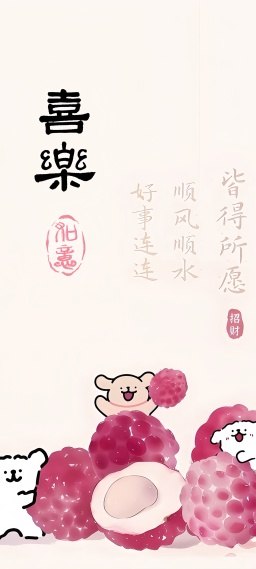 喜樂
如意
皆得所愿
顺风顺水
好事连连
招财